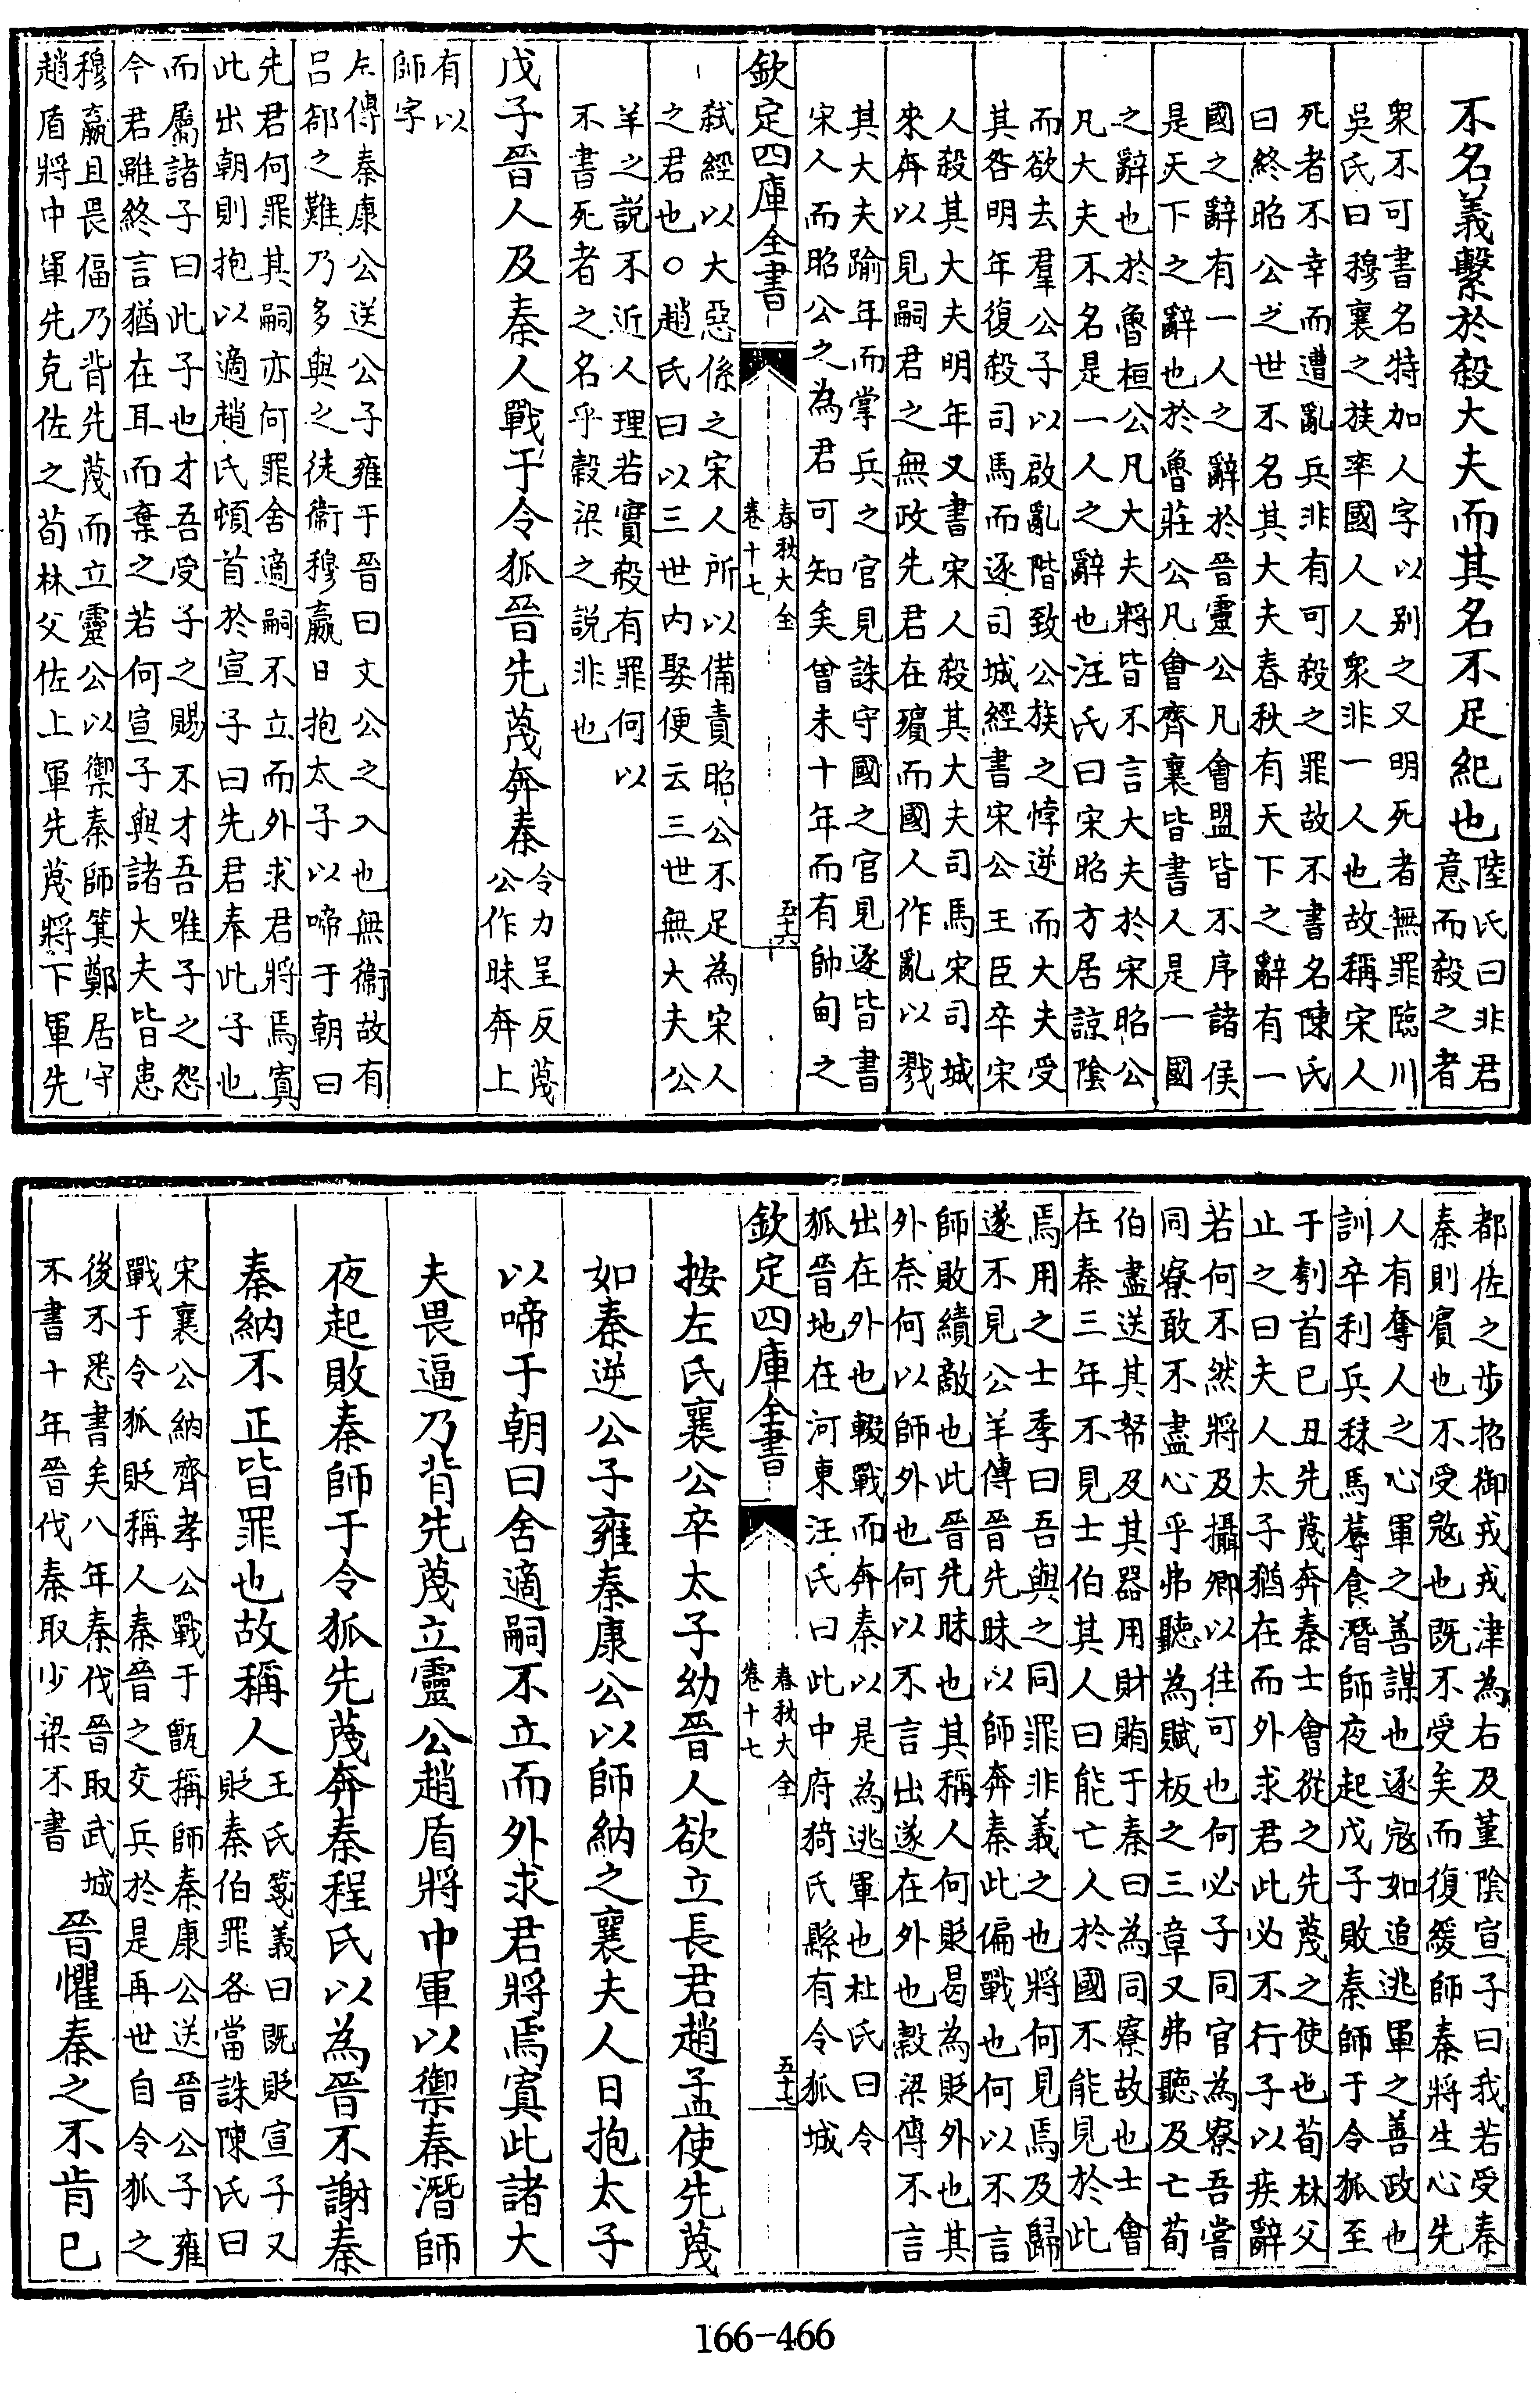 不名義繫於殺大夫而其名不足紀也陸氏曰非君
意而殺之者
衆不可書名特加人字以别之又明死者無罪臨川
吳氏曰穆襄之族率國人人衆非一人也故稱宋人
死者不幸而遭亂兵非有可殺之罪故不書名陳氏
曰終昭公之世不名其大夫春秋有天下之辭有一
國之辭有一人之辭於晉靈公凡會盟皆不序諸侯
是天下之辭也於魯莊公凡會齊襄皆書人是一國
之辭也於魯桓公凡大夫將皆不言大夫於宋昭公
凡大夫不名是一人之辭也汪氏曰宋昭方居諒陰
而欲去羣公子以啟亂階致公族之悖逆而大夫受
其咎明年復殺司馬而逐司城經書宋公王臣卒宋
人殺其大夫明年又書宋人殺其大夫司馬宋司城
來奔以見嗣君之無政先君在殯而國人作亂以戮
其大夫踰年而掌兵之官見誅守國之官見逐皆書
宋人而昭公之為君可知矣曾未十年而有帥甸之
欽定四庫全書
春秋大全
卷十七
五十六
弑經以大惡係之宋人所以備責昭公不足為宋人
之君也○趙氏曰以三世内娶便云三世無大夫公
羊之說不近人理若實殺有罪何以
不書死者之名乎穀梁之說非也
戊子晉人及秦人戰于令狐晉先蔑奔秦令力呈反蔑
公作昧奔上
有以
師字
左傳秦康公送公子雍于晉曰文公之入也無衞故有
呂郤之難乃多與之徒衞穆嬴日抱太子以啼于朝曰
先君何罪其嗣亦何罪舍適嗣不立而外求君將焉寘
此出朝則抱以適趙氏頓首於宣子曰先君奉此子也
而屬諸子曰此子也才吾受子之賜不才吾唯子之怨
今君雖終言猶在耳而棄之若何宣子與諸大夫皆患
穆嬴且畏偪乃背先蔑而立靈公以禦秦師箕鄭居守
趙盾將中軍先克佐之荀林父佐上軍先蔑將下軍先
都佐之步招御戎戎津為右及堇陰宣子曰我若受秦
秦則賓也不受寇也既不受矣而復緩師秦將生心先
人有奪人之心軍之善謀也逐寇如追逃軍之善政也
訓卒利兵秣馬蓐食潛師夜起戊子敗秦師于令狐至
于刳首已丑先蔑奔秦士會從之先蔑之使也荀林父
止之曰夫人太子猶在而外求君此必不行子以疾辭
若何不然將及攝卿以往可也何必子同官為寮吾嘗
同寮敢不盡心乎弗聽為賦板之三章又弗聽及亡荀
伯盡送其帑及其器用財賄于秦曰為同寮故也士會
在秦三年不見士伯其人曰能亡人於國不能見於此
焉用之士季曰吾與之同罪非義之也將何見焉及歸
遂不見公羊傳晉先昧以師奔秦此偏戰也何以不言
師敗績敵也此晉先昧也其稱人何貶曷為貶外也其
外奈何以師外也何以不言出遂在外也穀梁傳不言
出在外也輟戰而奔秦以是為逃軍也杜氏曰令
狐晉地在河東汪氏曰此中府猗氏縣有令狐城
欽定四庫全書
春秋大全
卷十七
五十七
按左氏襄公卒太子幼晉人欲立長君趙孟使先蔑
如秦逆公子雍秦康公以師納之襄夫人日抱太子
以啼于朝曰舍適嗣不立而外求君將焉寘此諸大
夫畏逼乃背先蔑立靈公趙盾將中軍以禦秦潛師
夜起敗秦師于令狐先蔑奔秦程氏以為晉不謝秦
秦納不正皆罪也故稱人王氏箋義曰既貶宣子又
貶秦伯罪各當誅陳氏曰
宋襄公納齊孝公戰于甗稱師秦康公送晉公子雍
戰于令狐貶稱人秦晉之交兵於是再世自令狐之
後不悉書矣八年秦伐晉取武城
不書十年晉伐秦取少梁不書
晉懼秦之不肯已
166-466